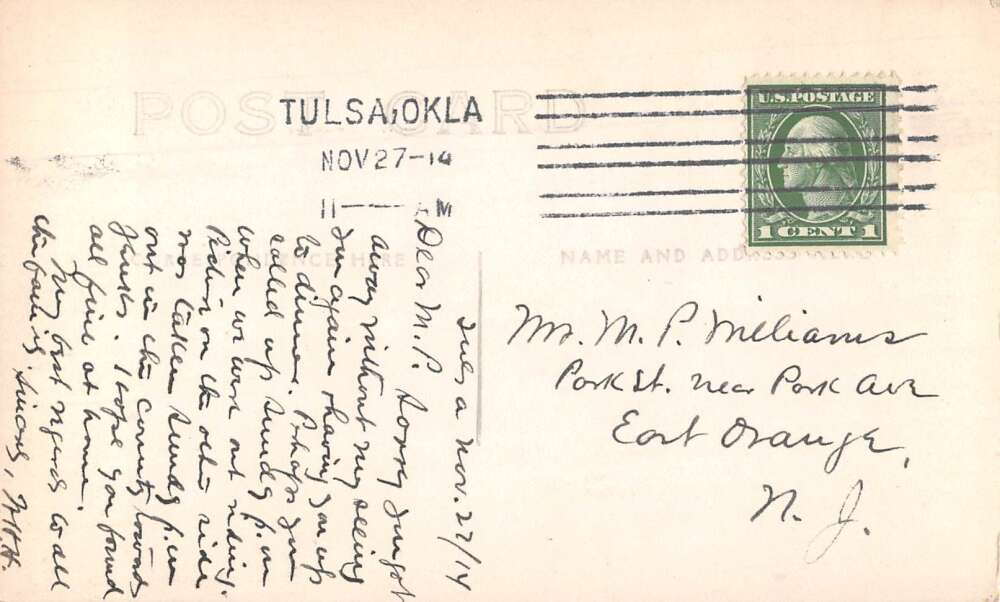 POST CARD
TULSA, OKLA
NOV 27-14
11 — AM
U.S. POSTAGE
1 CENT 1
CORRESPONDENCE HERE
NAME AND ADD
Mr. M. P. Williams
Park St. near Park Ave
East Orange,
N. J.
Tulsa Nov. 27/14
Dear M. P. Sorry you got
away without my seeing
you again & having you up
to dinner. Perhaps you
called up Sunday p.m
when we were out riding.
Picture on the other side
was taken Sunday p.m
out in the country towards
. I hope you found
all fine at home.
My best regards to all
the family. Sincerely,